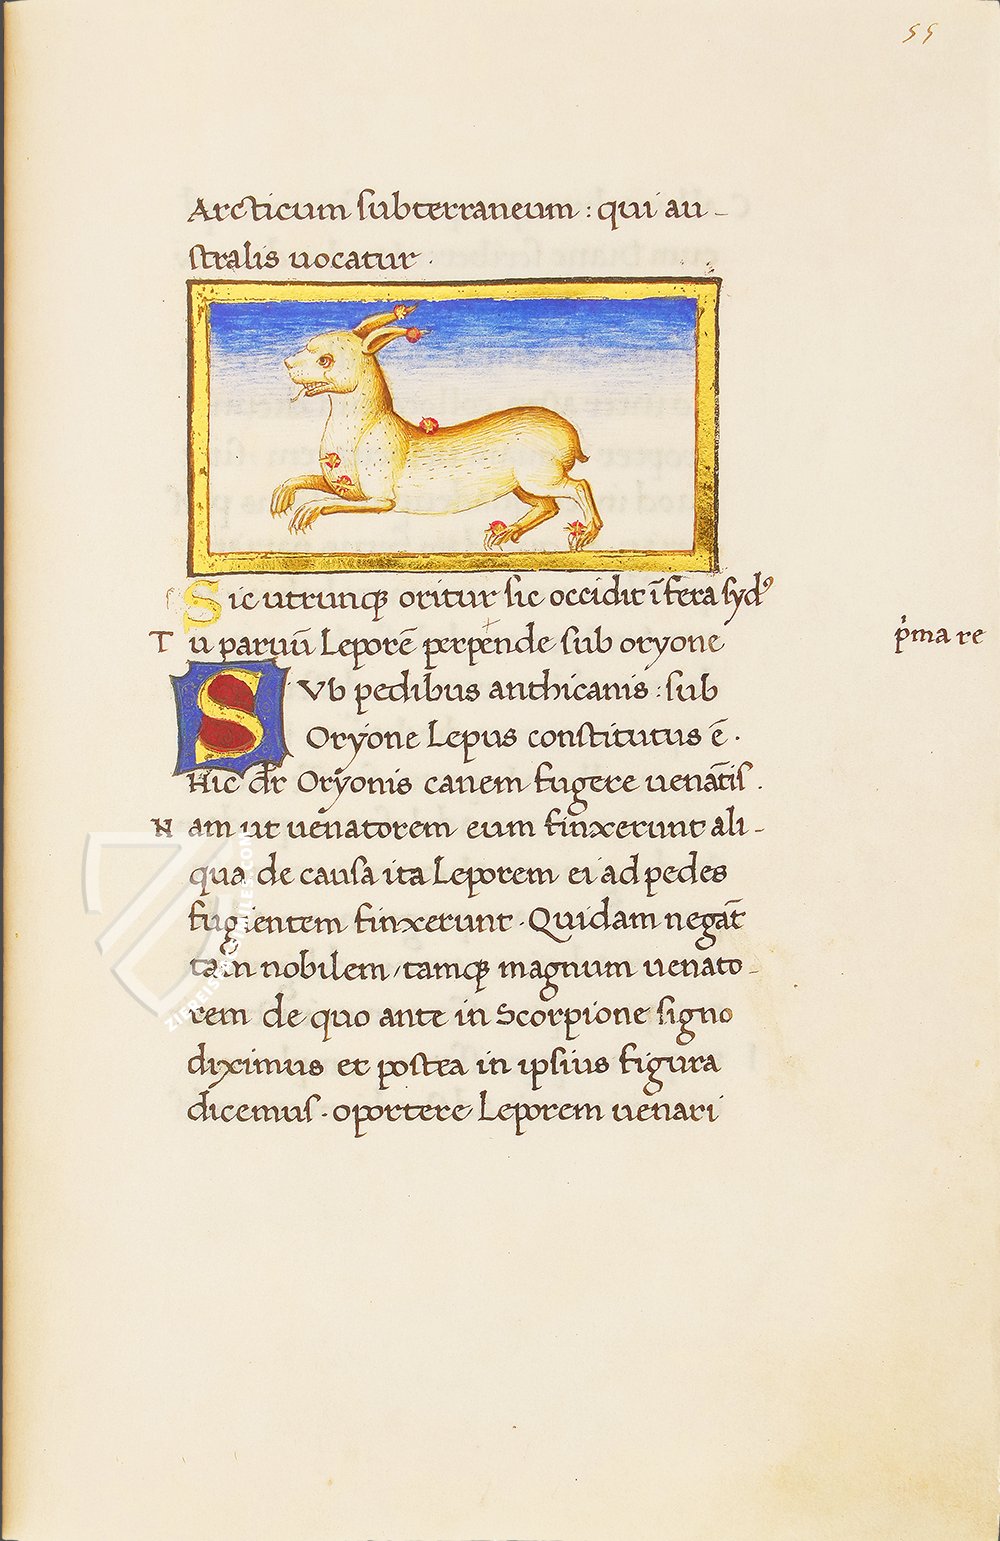 55
Arcticum subterraneum : qui au-
stralis uocatur .
Sic utrunq; oritur sic occidit ī fera syd⁹
Tu paruū Leporē perpende sub oryone
p̄ma re
SVb pedibus anthicanis : sub
Oryone Lepus constitutus ē .
Hic dr̄ Oryonis canem fugere uenāt̄is .
Nam ut uenatorem eum finxerunt ali-
qua de causa ita Leporem ei ad pedes
fugientem finxerunt . Quidam negāt
tam nobilem / tamq; magnum uenato-
rem de quo ante in Scorpione signo
diximus et postea in ipsius figura
dicemus . oportere Leporem uenari
ZIEREIS FACSIMILES.COM